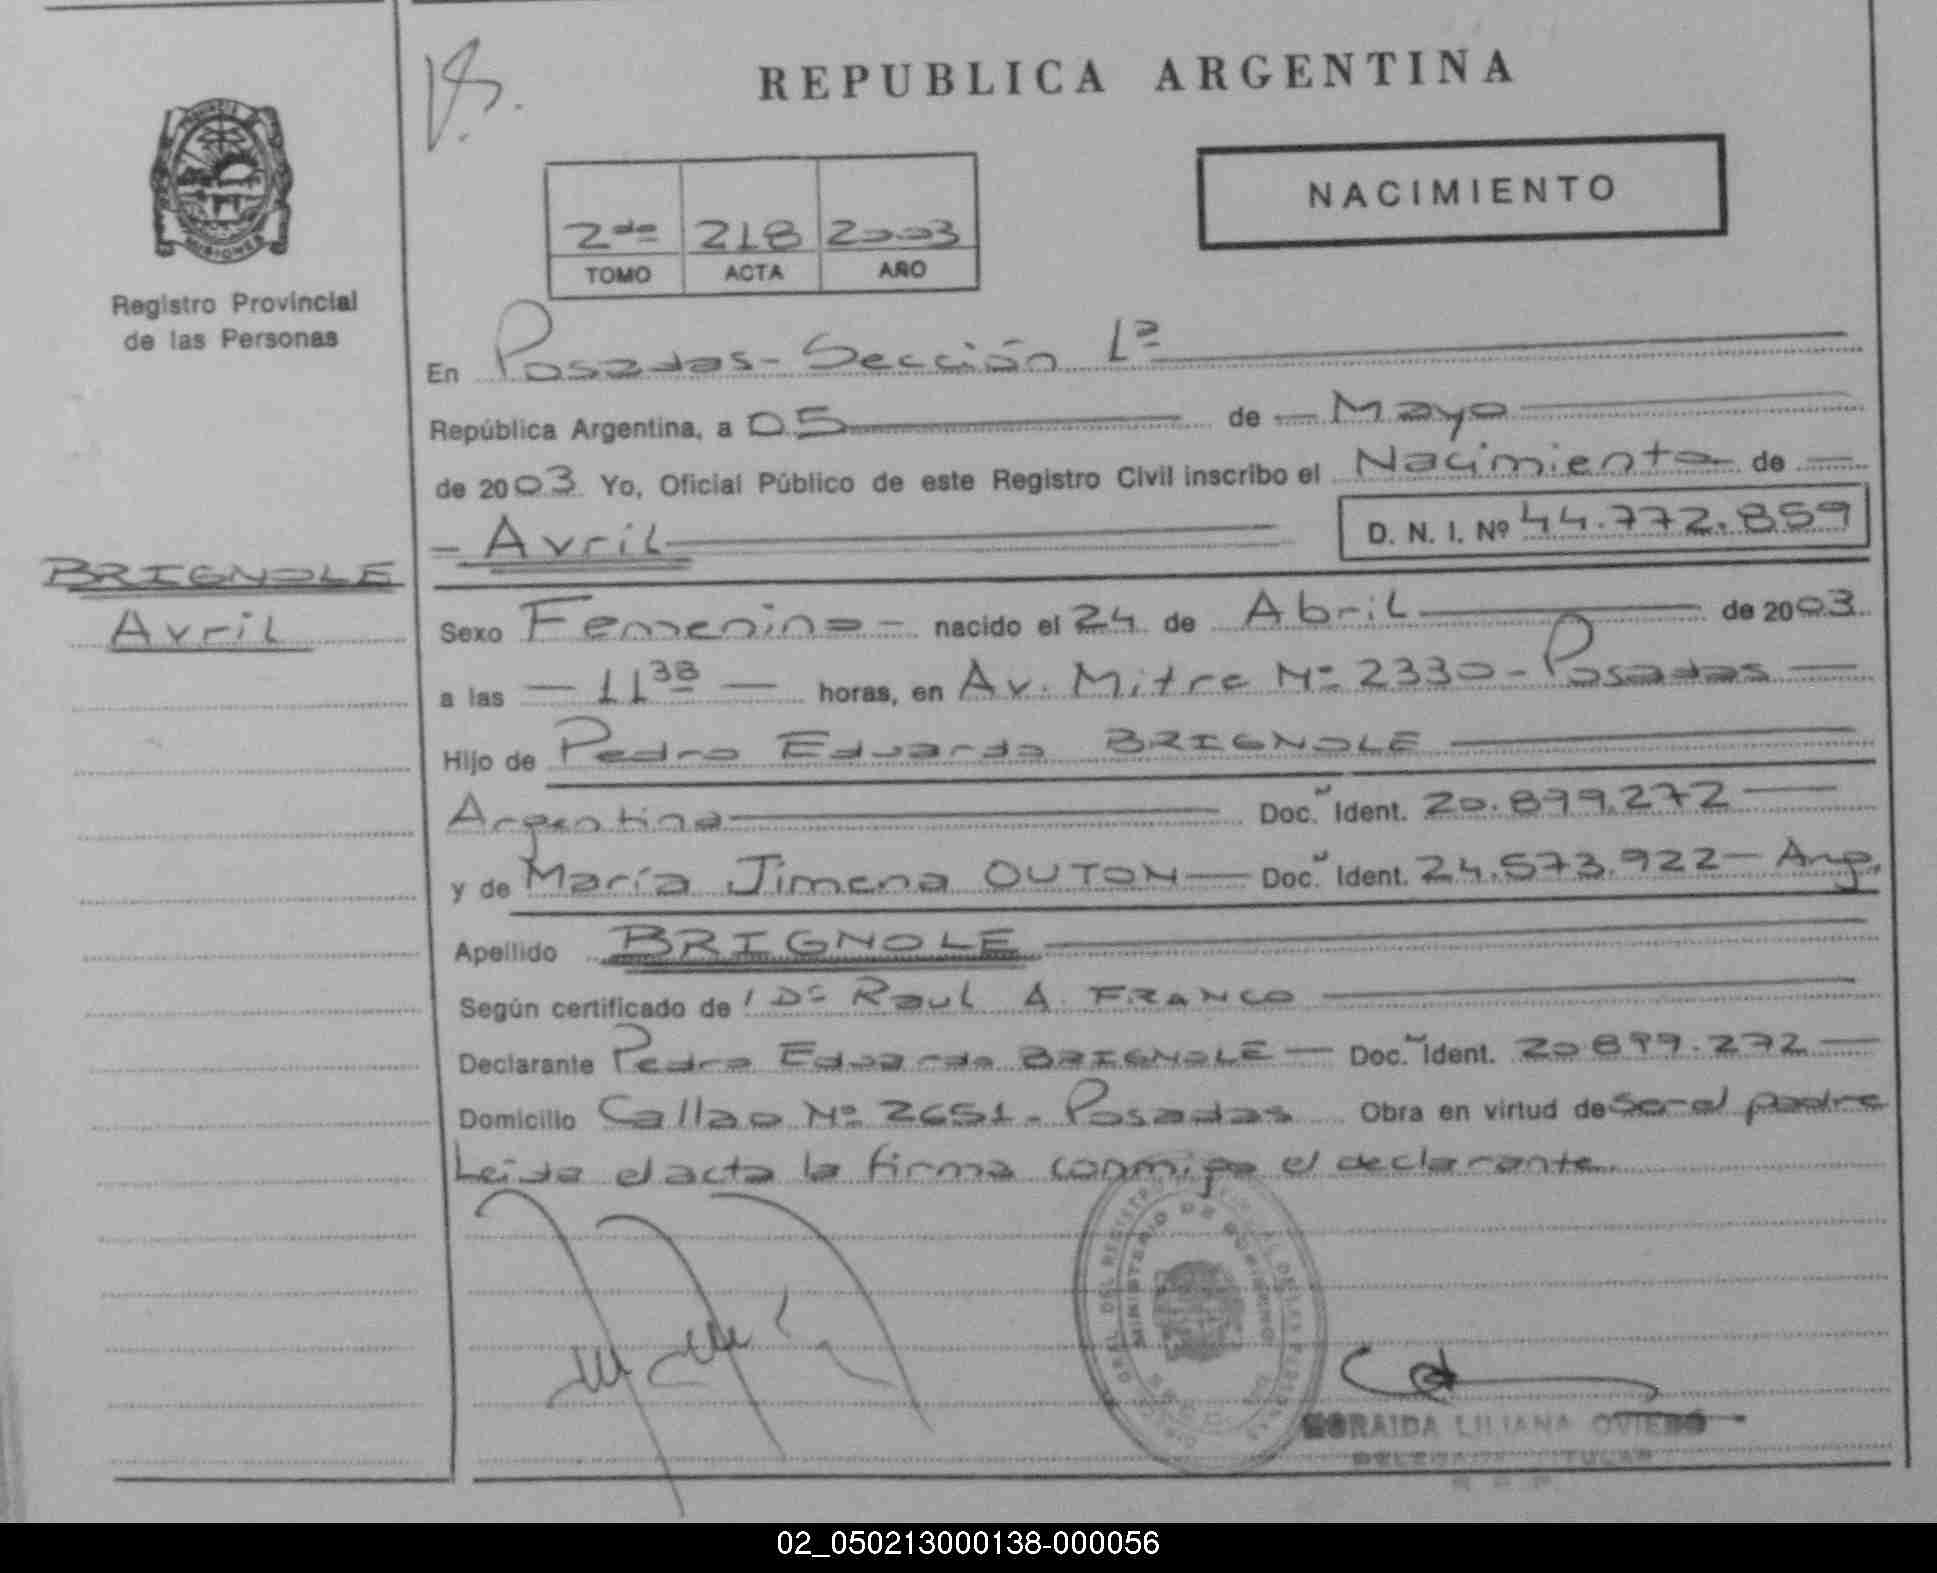 REPUBLICA ARGENTINA
NACIMIENTO
2do 218 2003
TOMO ACTA AÑO
PROVINCIA DE MISIONES
Registro Provincial
de las Personas
BRIGNOLE
Avril
En Posadas - Sección 1ª
República Argentina, a 05 de Mayo
de 2003 Yo, Oficial Público de este Registro Civil inscribo el Nacimiento de
Avril D. N. I. Nº 44.772.859
Sexo Femenino - nacido el 24 de Abril de 2003
a las 11 38 horas, en Av. Mitre Nº 2330 - Posadas
Hijo de Pedro Eduardo BRIGNOLE
Argentino Doc. Ident. 20.899.272
y de María Jimena OUTON Doc. Ident. 24.573.922 - Arg.
Apellido BRIGNOLE
Según certificado de / Dr Raul A. FRANCO
Declarante Pedro Eduardo BRIGNOLE Doc. Ident. 20.899.272
Domicilio Callao Nº 2651 - Posadas Obra en virtud de ser el padre
Leida el acta la firma conmigo el declarante.
MINISTERIO DE GOBIERNO
LILIANA OVIEDO
DELEGADA TITULAR
02_050213000138-000056